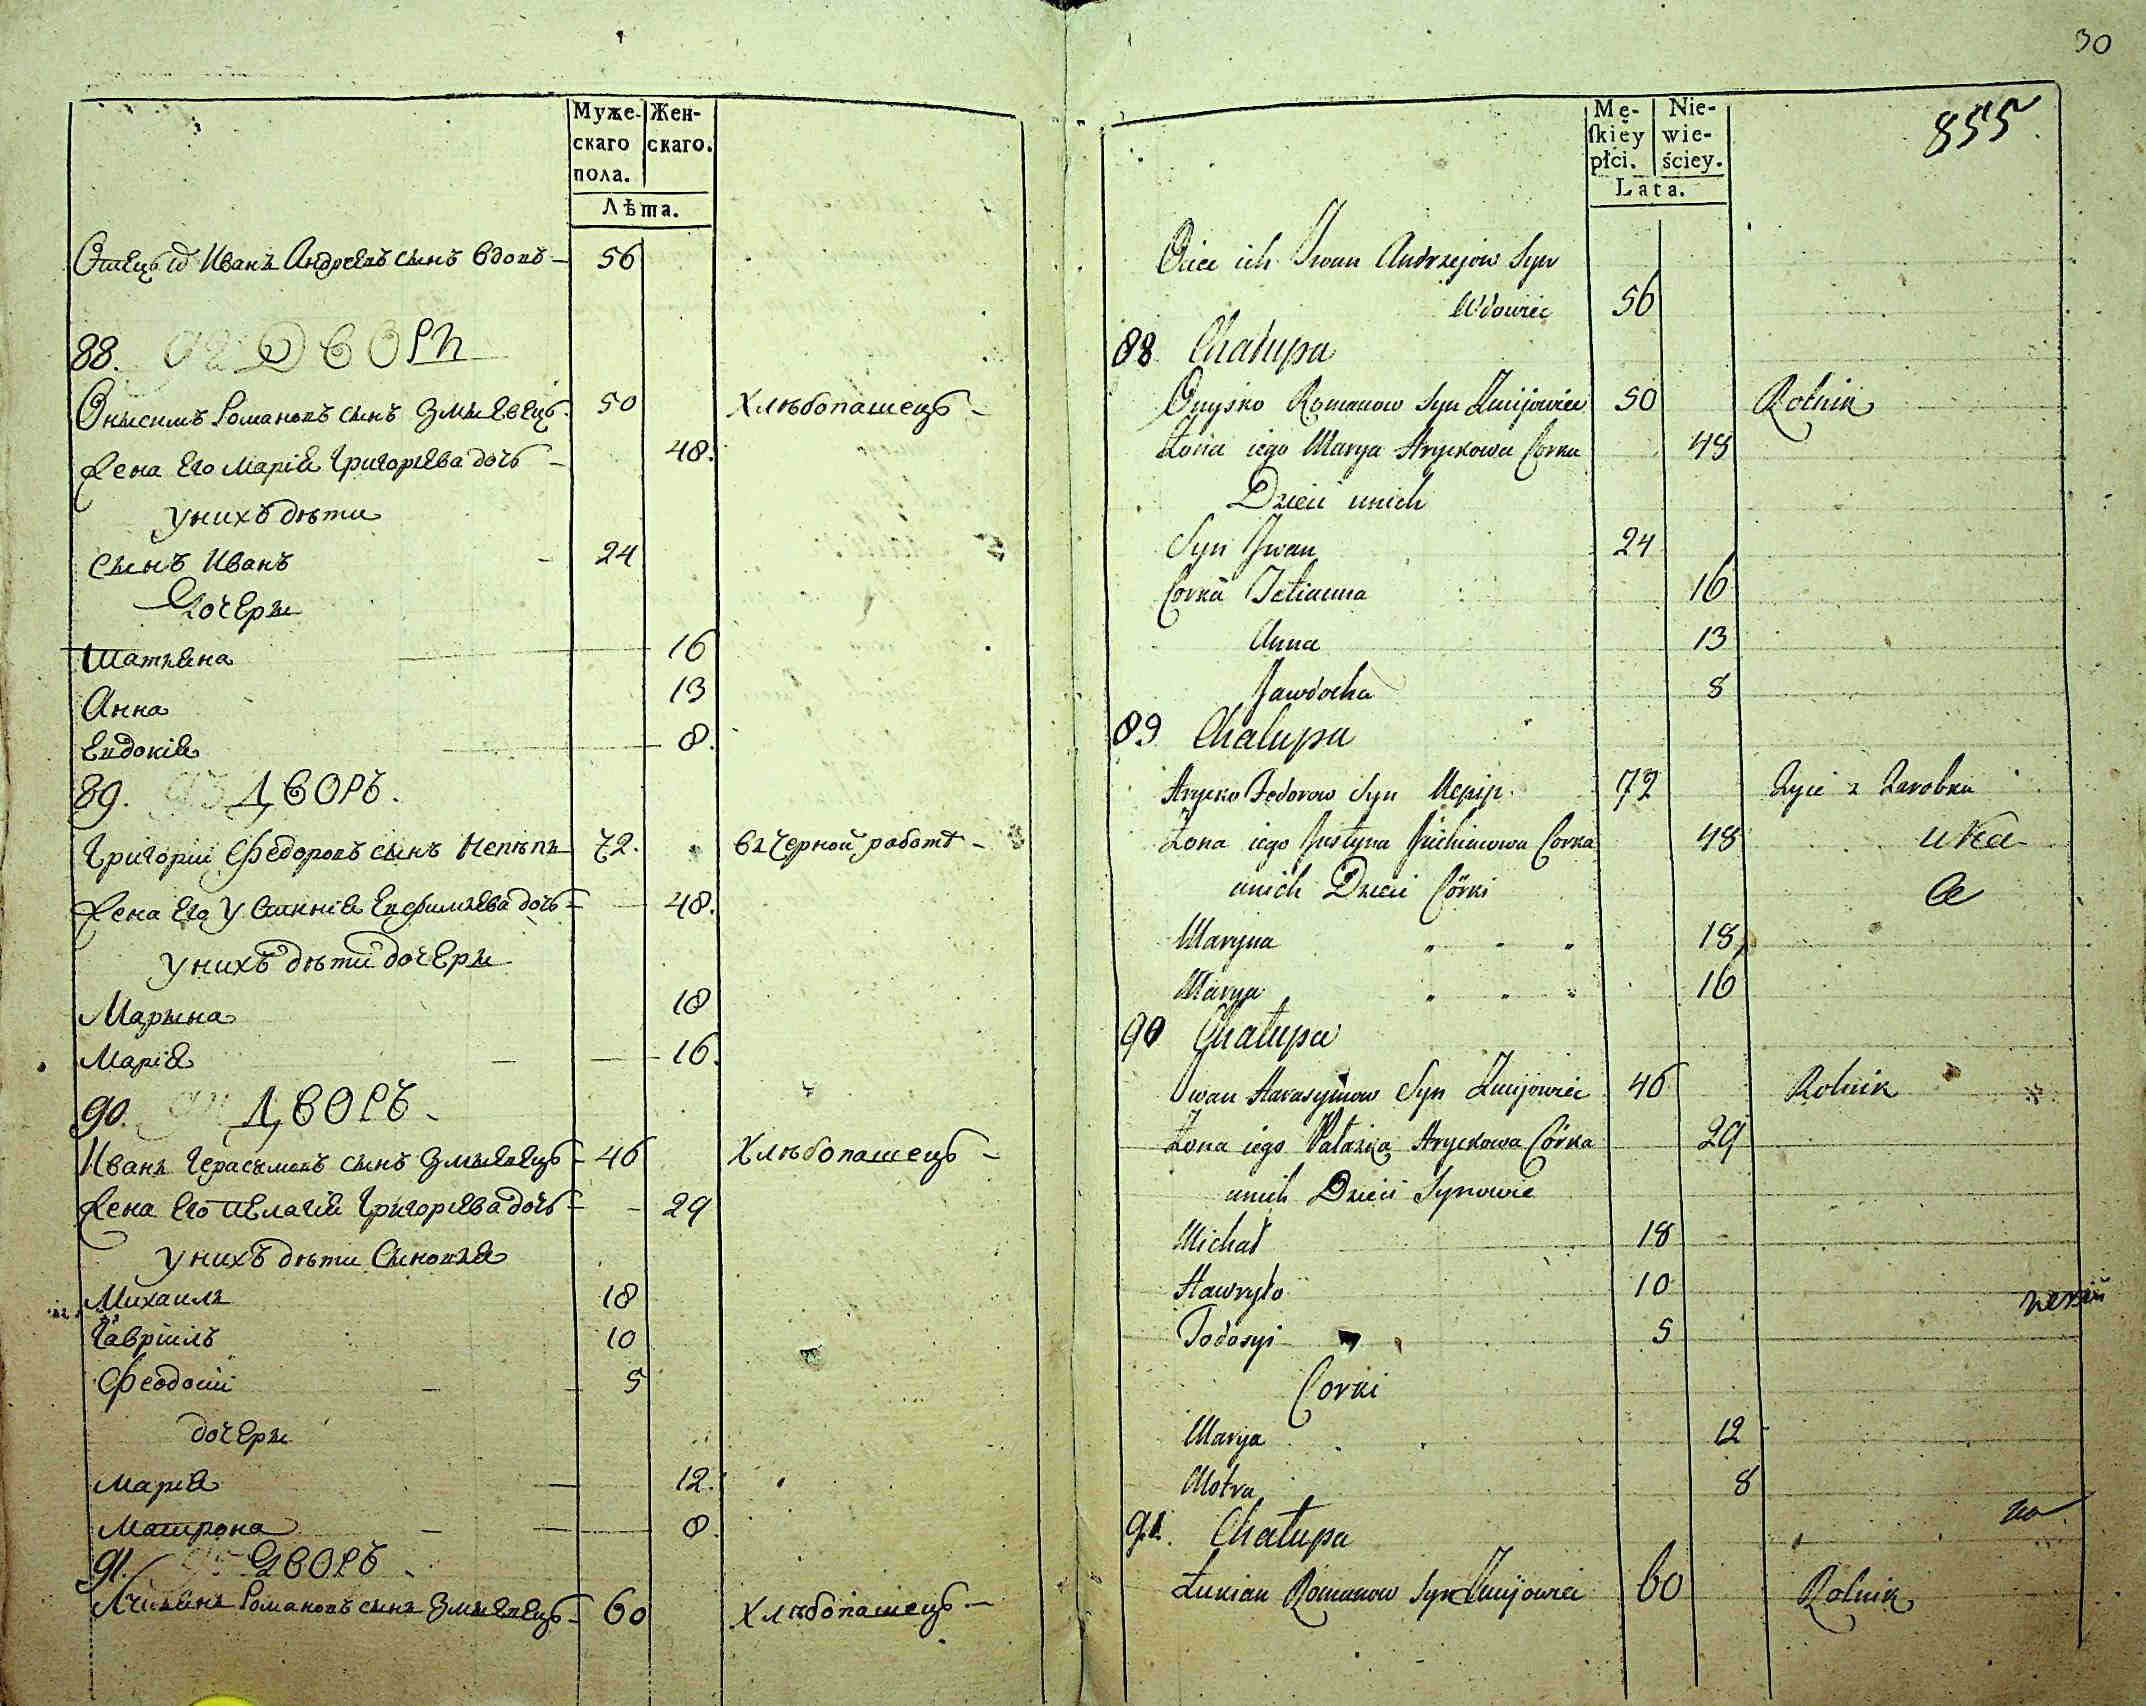 Муже-
скаго
пола.
Жен-
скаго.
Лѣта.
Отецъ Иванъ Андреевъ сынъ вдовъ 56
88. 92 ДВОРЪ
Онысимъ Романовъ сынъ Змыевецъ 50 Хлѣбопашецъ
Жена Его Марія Григорьева дочь 48.
у нихъ дѣти
сынъ Иванъ 24
Дочеры
Татыана 16
Анна 13
Евдокія 8.
89. 93 ДВОРЪ.
Григорій Федоровъ сынъ Непѣпъ 72. въ черной работѣ
Жена Его Устинія Евфимьева дочь 48.
у нихъ дѣти дочеры
Марына 18
Марія 16.
90. ДВОРЪ
Иванъ Герасимовъ сынъ Змыевецъ 46 Хлѣбопашецъ
Жена Его Пелагія Григорьева дочь 29
у нихъ дѣти Сыновья
Михаилъ 18
Гавріилъ 10
Феодосій 5
дочеры
Марія 12.
Матрона 8.
91. ДВОРЪ
Романовъ сынъ Змыевецъ 60 Хлѣбопашецъ
30
855
Mę-
skiey
płci.
Nie-
wie-
ściey.
Lata.
Ociec ich Iwan Andrzejow Syn
Wdowiec 56
88 Chałupa
Onysko Romanow Syn Zmijowiec 50 Rolnik
Żona iego Marya Hryckowa Corka 48
Dzieci unich
Syn Iwan 24
Corka Tetianna 16
Anna 13
Jawdocha 8
89 Chałupa
Hrycko Fedorow Syn Nepip 72 Żyie z Zarobku
Żona iego Justyna Juchimowa Corka 48
unich Dzieci Córki
Maryna 18
Marya 16
90 Chałupa
Iwan Harasymow Syn Zmijowiec 46 Rolnik
Żona iego Pałazka Hryckowa Córka 29
unich Dzieci Synowie
Michał 18
Hawryło 10
Todosyi 5
Corki
Marya 12
Motra 8
91. Chałupa
Łukian Romanow Syn Zmijowiec 60 Rolnik